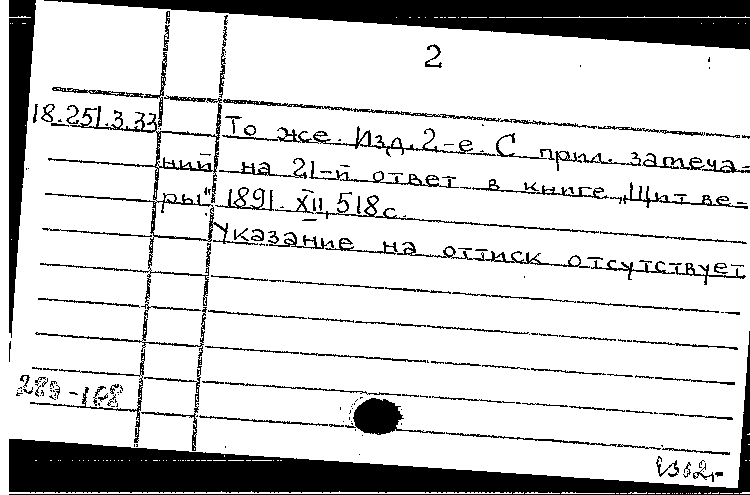 2
18.251.3.33 То же. Изд. 2-е. С прил. замеча-
ний на 21-й ответ в книге „Щит ве-
ры" 1891. XII, 518 с.
Указание на оттиск отсутствует
289-168